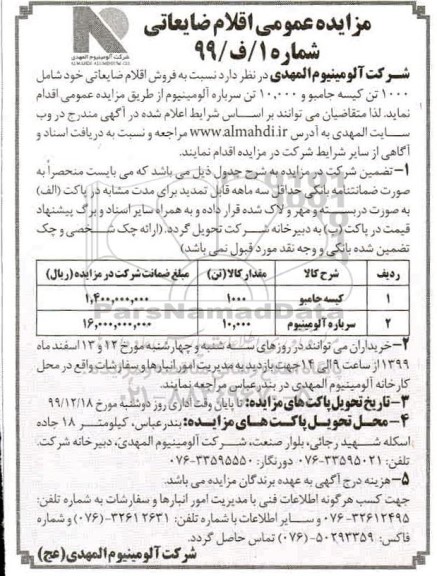 مزایده عمومی اقلام ضایعاتی
شماره ۱/ف/۹۹
شرکت آلومینیوم المهدی
ALMAHDI ALUMINIUM CO.
شرکت آلومینیوم المهدی در نظر دارد نسبت به فروش اقلام ضایعاتی خود شامل
۱۰۰۰ تن کیسه جامبو و ۱۰,۰۰۰ تن سرباره آلومینیوم از طریق مزایده عمومی اقدام
نماید. لذا متقاضیان می توانند بر اساس شرایط اعلام شده در آگهی مندرج در وب
سایت المهدی به آدرس www.almahdi.ir مراجعه و نسبت به دریافت اسناد و
آگاهی از سایر شرایط شرکت در مزایده اقدام نمایند.
۱- تضمین شرکت در مزایده به شرح جدول ذیل می باشد که می بایست منحصراً به
صورت ضمانتنامه بانکی حداقل سه ماهه قابل تمدید برای مدت مشابه در پاکت (الف)
به صورت دربسته و مهر و لاک شده قرار داده و به همراه سایر اسناد و برگ پیشنهاد
قیمت در پاکت (پ) به دبیرخانه شرکت تحویل گردد. (ارائه چک شخصی و چک
تضمین شده بانکی و وجه نقد مورد قبول نمی باشد)
ردیف شرح کالا مقدار کالا (تن) مبلغ ضمانت شرکت در مزایده (ریال)
۱ کیسه جامبو ۱۰۰۰ ۱,۴۰۰,۰۰۰,۰۰۰
۲ سرباره آلومینیوم ۱۰,۰۰۰ ۱۶,۰۰۰,۰۰۰,۰۰۰
ParsNamadData
۲- خریداران می توانند در روزهای سه شنبه و چهارشنبه مورخ ۱۲ و ۱۳ اسفند ماه
۱۳۹۹ از ساعت ۹ الی ۱۴ جهت بازدید به مدیریت امور انبارها و سفارشات واقع در محل
کارخانه آلومینیوم المهدی در بندرعباس مراجعه نمایند.
۳- تاریخ تحویل پاکت های مزایده: تا پایان وقت اداری روز دوشنبه مورخ ۹۹/۱۲/۱۸
۴- محل تحویل پاکت های مزایده: بندرعباس، کیلومتر ۱۸ جاده
اسکله شهید رجائی، بلوار صنعت، شرکت آلومینیوم المهدی، دبیرخانه شرکت.
تلفن: ۳۳۵۹۵۰۲۱-۰۷۶ دورنگار: ۳۳۵۹۵۵۵۰-۰۷۶
۵- هزینه درج آگهی به عهده برندگان مزایده می باشد.
جهت کسب هرگونه اطلاعات فنی با مدیریت امور انبارها و سفارشات به شماره تلفن:
۳۲۶۱۲۴۹۵-۰۷۶ و سایر اطلاعات با شماره تلفن: ۳۲۶۱۲۶۳۱ (۰۷۶) و شماره
فاکس: ۵۰۲۹۳۳۵۹-(۰۷۶) تماس حاصل گردد.
شرکت آلومینیوم المهدی (عج)